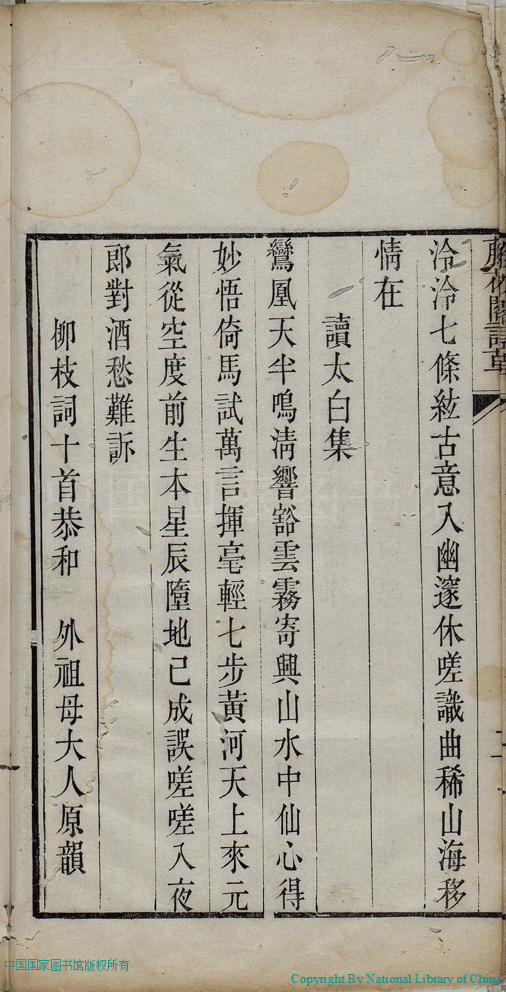 閣詩草
二
泠泠七條絃古意入幽邃休嗟識曲稀山海移
情在
讀太白集
鸞凰天半鳴淸響豁雲霧寄興山水中仙心得
妙悟倚馬試萬言揮毫輕七步黃河天上來元
氣從空度前生本星辰墮地已成誤嗟嗟入夜
郎對酒愁難訴
柳枝詞十首恭和　外祖母大人原韻
中国国家图书馆版权所有
Copyright By National Library of China